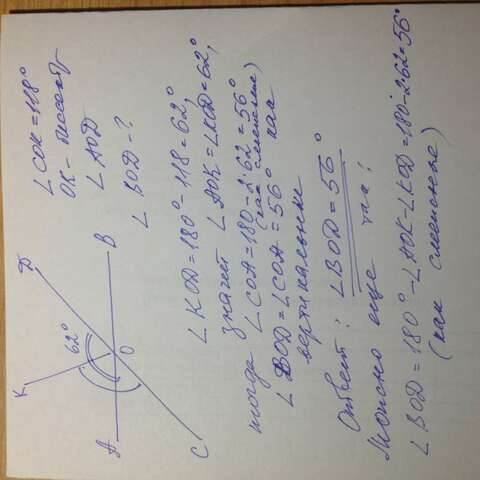 ∠COK=118°
OK - биссект
∠AOD
∠BOD-?
K
D
62°
A
O
B
C
∠KOD=180°-118=62°,
значит ∠AOK=∠KOD=62°,
тогда ∠COA=180-2·62=56°
(как смежные)
∠BOD=∠COA=56° как
вертикальные
Ответ: ∠BOD=56°
Можно еще так:
∠BOD=180°-∠AOK-∠KOD=180-2·62=56°
(как смежные)